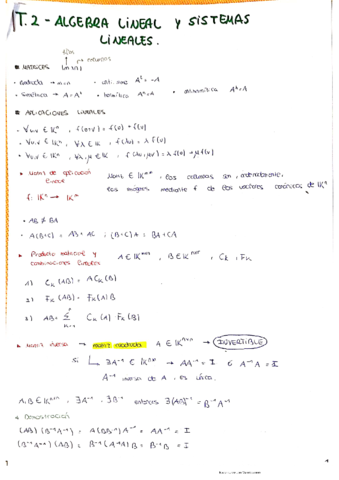 T.2 - ALGEBRA LINEAL Y SISTEMAS
LINEALES.
■ MATRICES
• cuadrada → m=n
• simétrica → A=Aᵗ
• hermítica Aʰ=A
■ APLICACIONES LINEALES
• ∀u,v ∈ 𝕂ⁿ, f(u+v) = f(u) + f(v)
• ∀u,v ∈ 𝕂ⁿ, ∀λ ∈ 𝕂, f(λu) = λ f(u)
• ∀u,v ∈ 𝕂ⁿ, ∀λ,μ ∈ 𝕂, f(λu+μv) = λ f(u) + μ f(v)
► Matriz de aplicación lineal
f: 𝕂ⁿ → 𝕂ᵐ
las imágenes mediante f de los vectores canónicos de 𝕂ⁿ
• AB ≠ BA
• A(B+C) = AB + AC ; (B+C)A = BA + CA
► Producto matricial y combinaciones lineales A ∈ 𝕂ᵐˣⁿ, B ∈ 𝕂ⁿˣᵖ, Cₖ, Fₖ
1) Cₖ(AB) = A Cₖ(B)
2) Fₖ(AB) = Fₖ(A) B
3) AB = Σ Cₖ(A) Fₖ(B)
► Matriz inversa → matriz cuadrada A ∈ 𝕂ⁿˣⁿ → INVERTIBLE
Si ∃A⁻¹ ∈ 𝕂ⁿˣⁿ → AA⁻¹ = I ó A⁻¹A = I
A⁻¹ inversa de A, es única.
A,B ∈ 𝕂ⁿˣⁿ ∃A⁻¹, ∃B⁻¹ entonces ∃(AB)⁻¹ = B⁻¹A⁻¹
→ Demostración
(AB)(B⁻¹A⁻¹) = A(BB⁻¹)A⁻¹ = AA⁻¹ = I
(B⁻¹A⁻¹)(AB) = B⁻¹(A⁻¹A)B = B⁻¹B = I
1